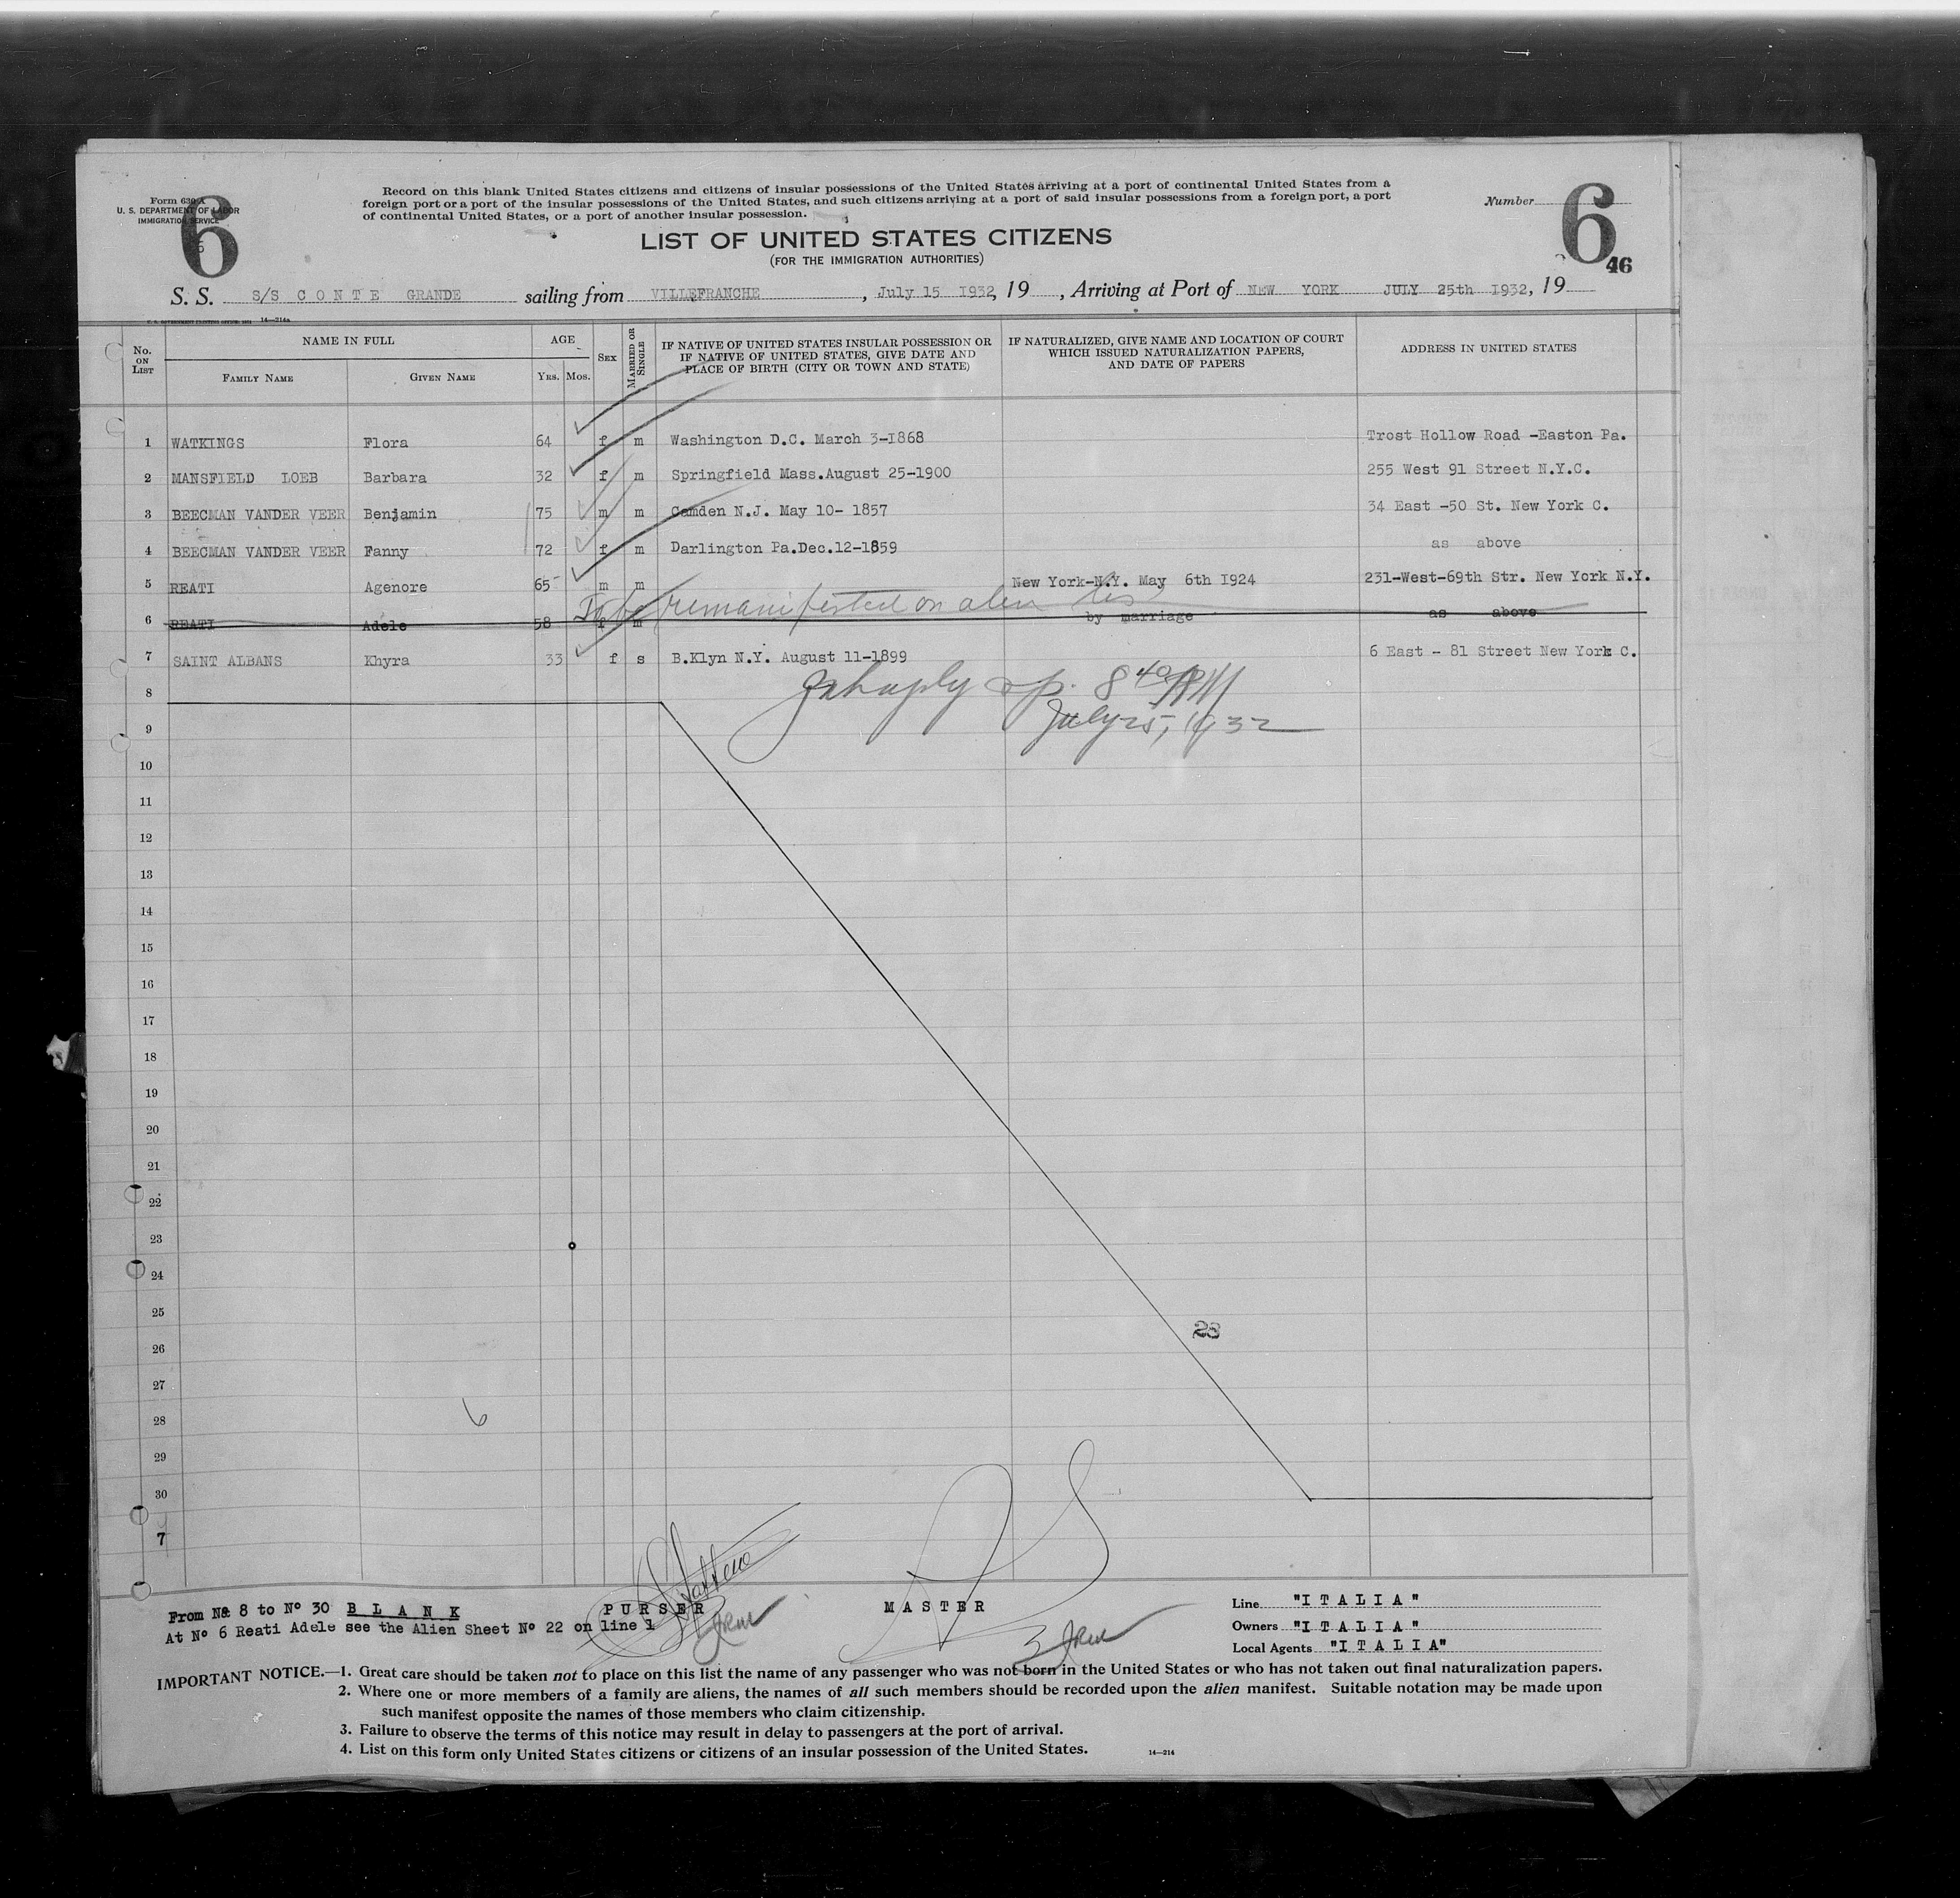 Form 630-A
U. S. DEPARTMENT OF LABOR
IMMIGRATION SERVICE
6
6
Record on this blank United States citizens and citizens of insular possessions of the United States arriving at a port of continental United States from a
foreign port or a port of the insular possessions of the United States, and such citizens arriving at a port of said insular possessions from a foreign port, a port
of continental United States, or a port of another insular possession.
Number 6
46
LIST OF UNITED STATES CITIZENS
(FOR THE IMMIGRATION AUTHORITIES)
S. S. S/S C O N T E GRANDE sailing from VILLEFRANCHE , July 15 1932, 19 , Arriving at Port of NEW YORK JULY 25th 1932, 19
14—214a
No. ON LIST NAME IN FULL AGE SEX MARRIED OR SINGLE IF NATIVE OF UNITED STATES INSULAR POSSESSION OR IF NATIVE OF UNITED STATES, GIVE DATE AND PLACE OF BIRTH (CITY OR TOWN AND STATE) IF NATURALIZED, GIVE NAME AND LOCATION OF COURT WHICH ISSUED NATURALIZATION PAPERS, AND DATE OF PAPERS ADDRESS IN UNITED STATES
FAMILY NAME GIVEN NAME YRS. MOS.
1 WATKINGS Flora 64 f m Washington D.C. March 3-1868 Trost Hollow Road -Easton Pa.
2 MANSFIELD LOEB Barbara 32 f m Springfield Mass.August 25-1900 255 West 91 Street N.Y.C.
3 BEECMAN VANDER VEER Benjamin 75 m m Camden N.J. May 10- 1857 34 East -50 St. New York C.
4 BEECMAN VANDER VEER Fanny 72 f m Darlington Pa.Dec.12-1859 as above
5 REATI Agenore 65 m m New York-N.Y. May 6th 1924 231-West-69th Str. New York N.Y.
To be remanifested on alien
6 REATI Adele 58 f m by marriage as above
7 SAINT ALBANS Khyra 33 f s B.Klyn N.Y. August 11-1899 6 East - 81 Street New York C.
8
July 25, 1932
9
10
11
12
13
14
15
16
17
18
19
20
21
22
23
24
25
28
26
27
28
6
29
30
7
From No 8 to No 30 B L A N K
At No 6 Reati Adele see the Alien Sheet No 22 on line 1
P U R S E R
M A S T E R
Line "I T A L I A"
Owners "I T A L I A"
Local Agents "I T A L I A"
IMPORTANT NOTICE.—1. Great care should be taken not to place on this list the name of any passenger who was not born in the United States or who has not taken out final naturalization papers.
2. Where one or more members of a family are aliens, the names of all such members should be recorded upon the alien manifest. Suitable notation may be made upon
such manifest opposite the names of those members who claim citizenship.
3. Failure to observe the terms of this notice may result in delay to passengers at the port of arrival.
4. List on this form only United States citizens or citizens of an insular possession of the United States.
14—214